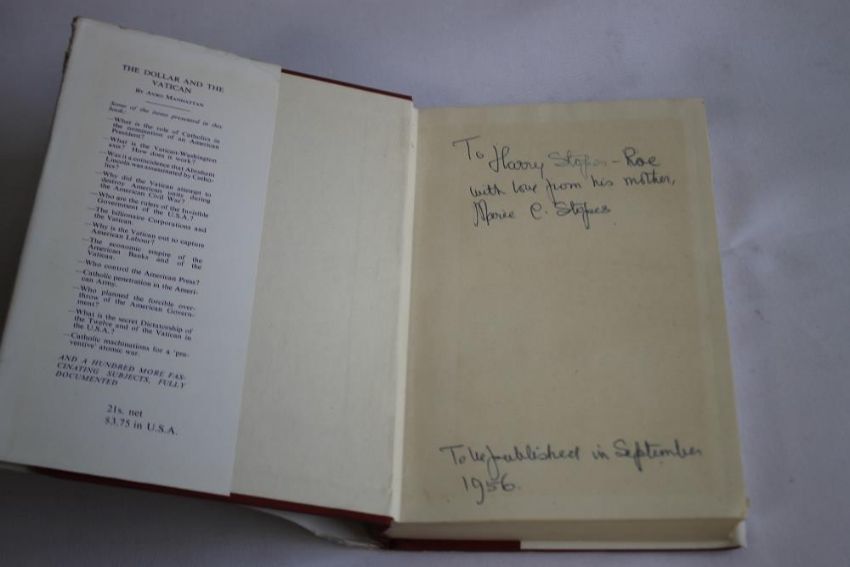 THE DOLLAR AND THE
VATICAN
BY AVRO MANHATTAN
Some of the items presented in this
book:
—What is the role of Catholics in
the nomination of an American
President?
—What is the Vatican-Washington
axis? How does it work?
—Was it a coincidence that Abraham
Lincoln was assassinated by Catho-
lics?
—Why did the Vatican attempt to
destroy American unity during
the American Civil War?
—Who are the rulers of the Invisible
Government of the U.S.A.?
—The billionaire Corporations and
the Vatican.
—Why is the Vatican out to capture
American Labour?
—The economic empire of the
American Banks and of the
Vatican.
—Who control the American Press?
—Catholic penetration in the Ameri-
can Army.
—Who planned the forcible over-
throw of the American Govern-
ment?
—What is the secret Dictatorship of
the Twelve and of the Vatican in
the U.S.A.?
—Catholic machinations for a 'pre-
ventive' atomic war.
AND A HUNDRED MORE FAS-
CINATING SUBJECTS, FULLY
DOCUMENTED
21s. net
$3.75 in U.S.A.
To Harry Stopes-Roe
with love from his mother,
Marie C. Stopes
To be published in September
1956.